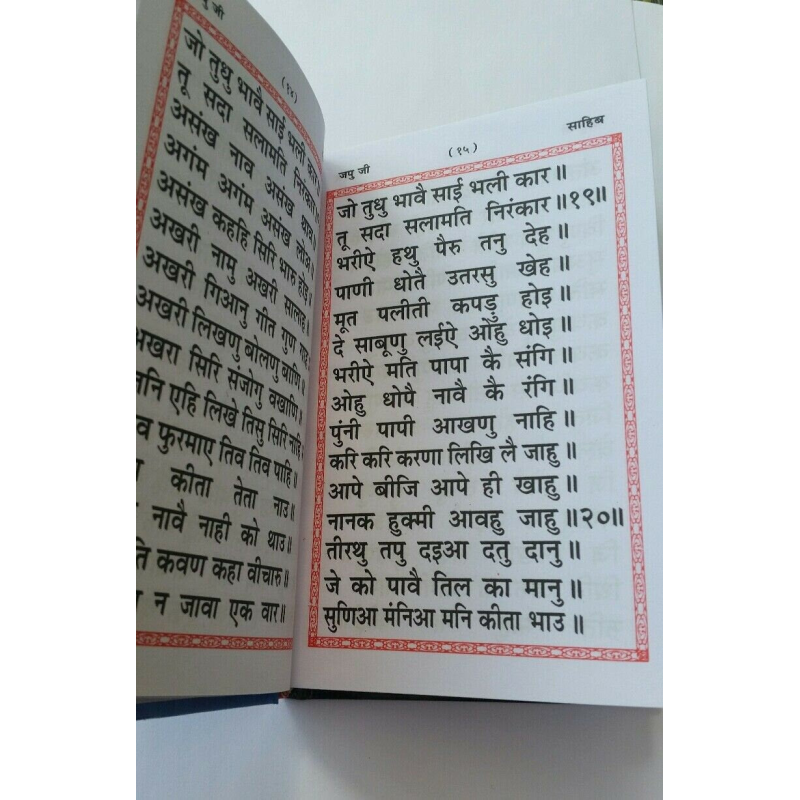 पु जी
(१४)
जो तुधु भावै साई भली कार॥
तू सदा सलामति निरंकार॥
असंख नाव असंख थाव॥
अगंम अगंम असंख लोअ॥
असंख कहहि सिरि भारु होइ॥
अखरी नामु अखरी सालाह॥
अखरी गिआनु गीत गुण गाह॥
अखरी लिखणु बोलणु बाणि॥
अखरा सिरि संजोगु वखाणि॥
जिनि एहि लिखे तिसु सिरि नाहि॥
व फुरमाए तिव तिव पाहि॥
कीता तेता नाउ॥
नावै नाही को थाउ॥
ति कवण कहा वीचारु॥
न जावा एक वार॥
जपु जी
(१५)
साहिब
जो तुधु भावै साई भली कार॥
तू सदा सलामति निरंकार॥१९॥
भरीऐ हथु पैरु तनु देह॥
पाणी धोतै उतरसु खेह॥
मूत पलीती कपड़ु होइ॥
दे साबूणु लईऐ ओहु धोइ॥
भरीऐ मति पापा कै संगि॥
ओहु धोपै नावै कै रंगि॥
पुंनी पापी आखणु नाहि॥
करि करि करणा लिखि लै जाहु॥
आपे बीजि आपे ही खाहु॥
नानक हुक्मी आवहु जाहु॥२०॥
तीरथु तपु दइआ दतु दानु॥
जे को पावै तिल का मानु॥
सुणिआ मंनिआ मनि कीता भाउ॥